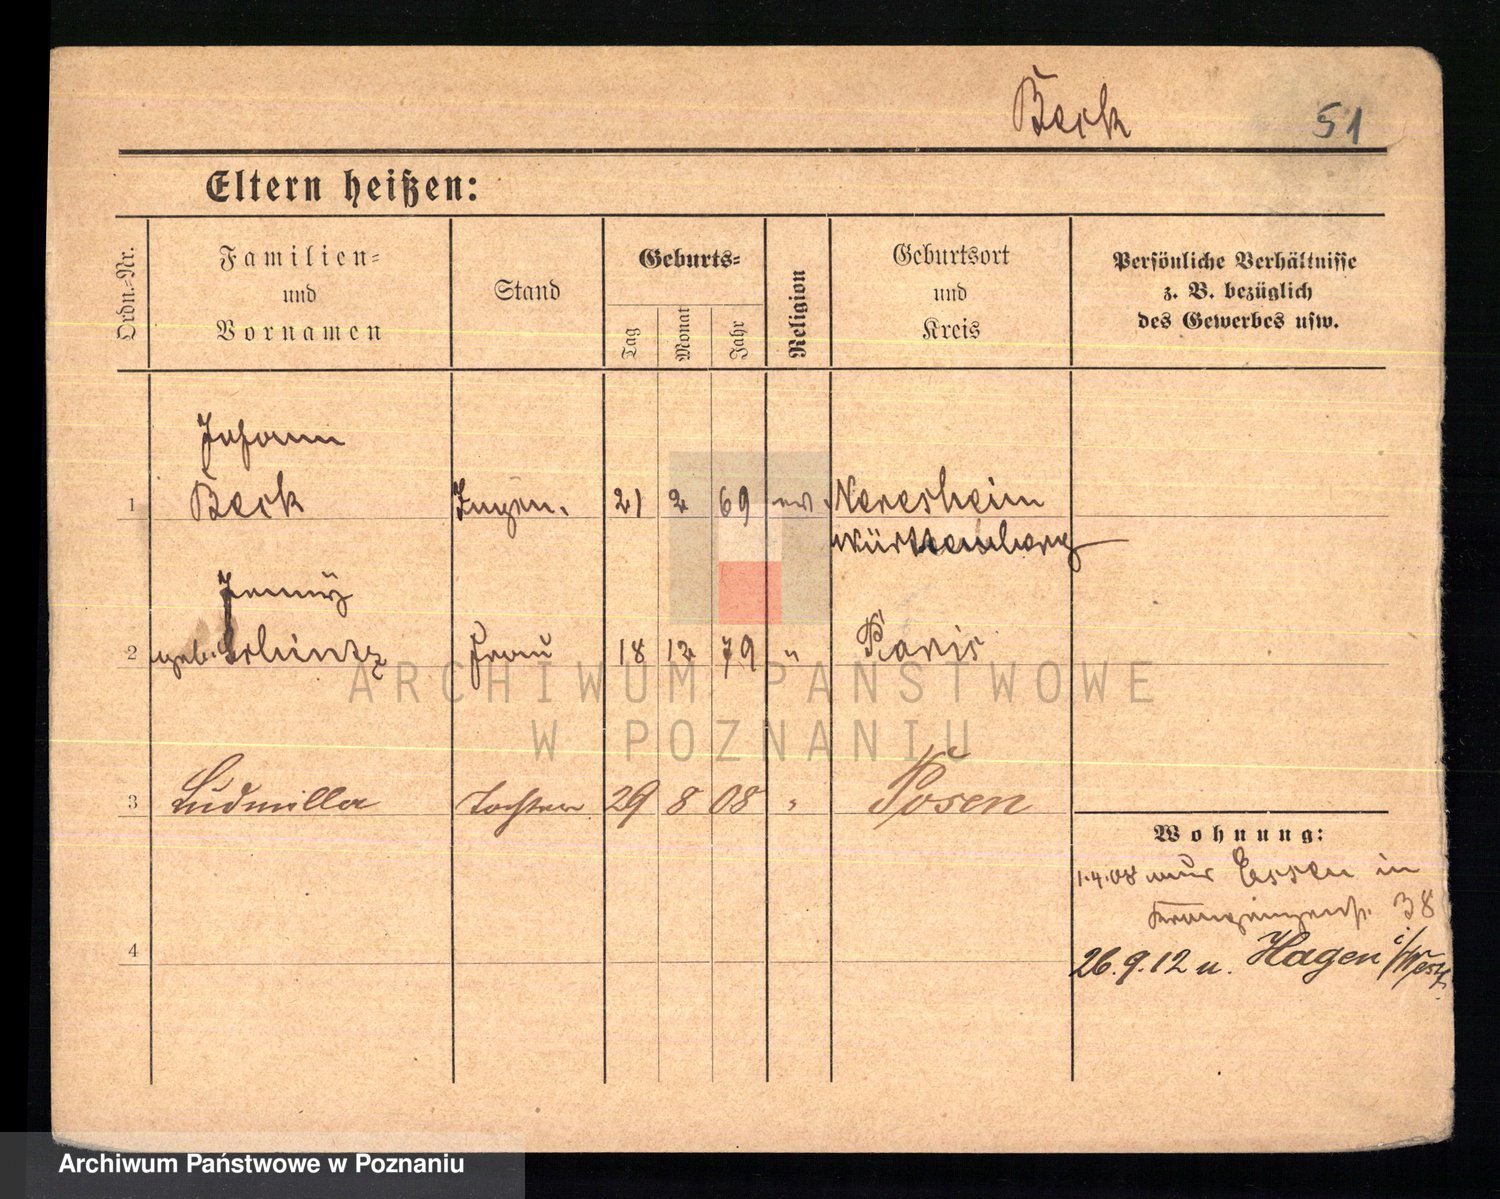 Beck 51
Eltern heißen:
Ordn.-Nr.
Familien-
und
Vornamen
Stand
Geburts-
Tag
Monat
Jahr
Religion
Geburtsort
und
Kreis
Persönliche Verhältnisse
z. B. bezüglich
des Gewerbes usw.
Johann
1 Beck Ingen. 21 2 69 ev Neresheim
Württemberg
Jenny
2 geb. Schintz Frau 18 12 79 " Paris
3 Ludmilla Tochter 29 8 08 " Posen
Wohnung:
1.4.08 von Essen in
38
4
26.9.12 n. Hagen i/Westf.
ARCHIWUM PAŃSTWOWE
W POZNANIU
Archiwum Państwowe w Poznaniu